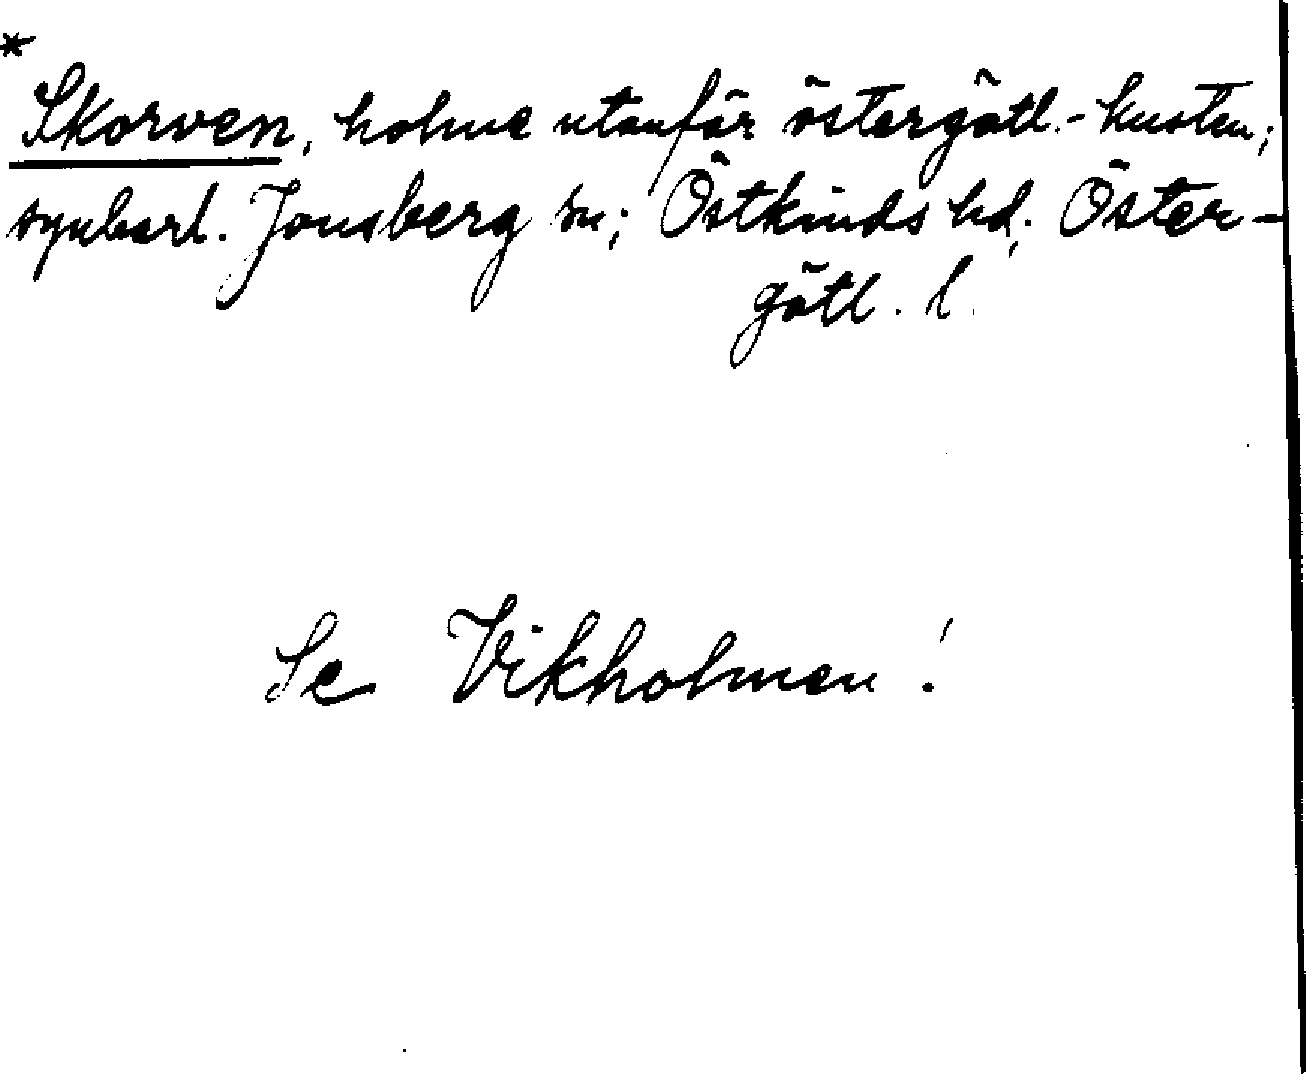 *
Skorven, holme utanför östergötl.-kusten;
synbarl. Jonsberg sn; Östkinds hd; Öster-
götl. l.
Se Vikholmen!